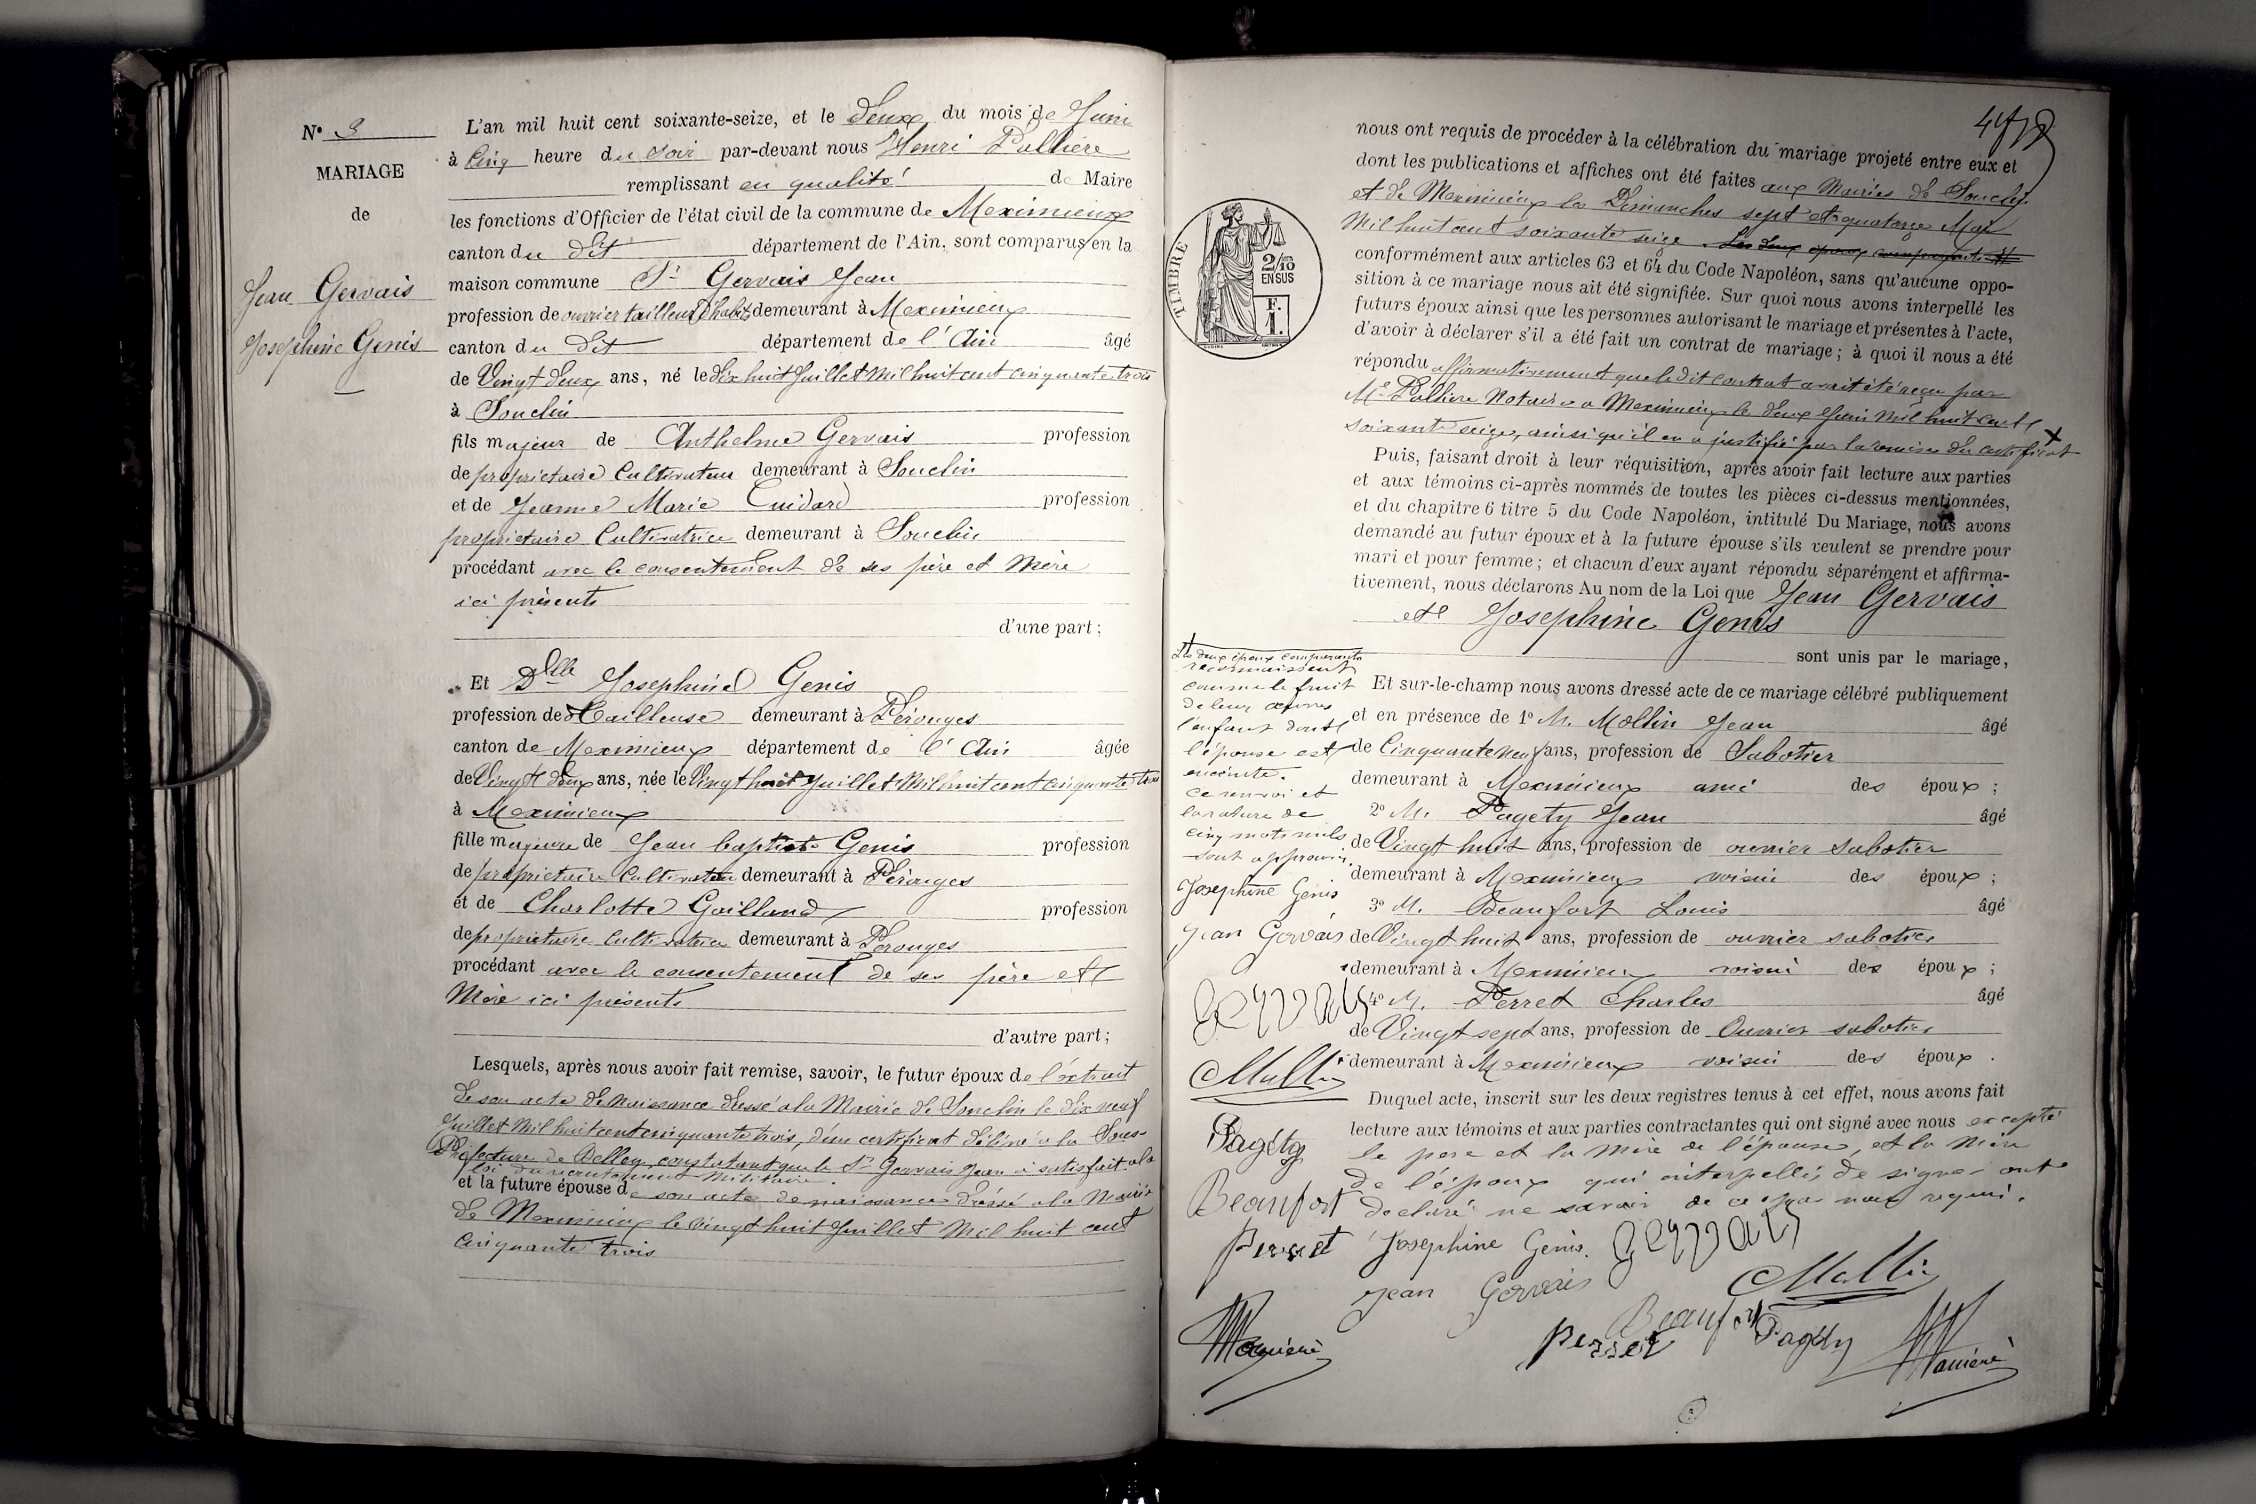 N° 3
MARIAGE
de
Jean Gervais
Josephine Genis
L'an mil huit cent soixante-seize, et le deux du mois de Juin
à Cinq heure du soir par-devant nous Henri Pallière
remplissant en qualité de Maire
les fonctions d'Officier de l'état civil de la commune de Meximieux
canton du dit département de l'Ain, sont comparus en la
maison commune Sr Gervais Jean
profession de ouvrier tailleur d'habits demeurant à Meximieux
canton du dit département de l'Ain âgé
de Vingt deux ans, né le dix huit Juillet Mil huit cent cinquante trois
à Souclin
fils majeur de Anthelme Gervais profession
de propriétaire Cultivateur demeurant à Souclin
et de Jeanne Marie Cuidard profession
propriétaire Cultivatrice demeurant à Souclin
procédant avec le consentement de ses père et Mère
ici présents
d'une part ;
Et Dlle Josephine Genis
profession de Tailleuse demeurant à Pérouges
canton de Meximieux département de l'Ain âgée
de Vingt deux ans, née le Vingt huit Juillet Mil huit cent cinquante trois
à Meximieux
fille majeure de Jean baptiste Genis profession
de propriétaire Cultivateur demeurant à Pérouges
et de Charlotte Gailland profession
de propriétaire cultivatrice demeurant à Pérouges
procédant avec le consentement de ses père et
Mère ici présents
d'autre part ;
Lesquels, après nous avoir fait remise, savoir, le futur époux de l'extrait
de son acte de Naissance dressé a la Mairie de Souclin le dix neuf
Juillet Mil huit cent cinquante trois, d'un certificat délivré a la Sous-
Préfecture de Belley constatant que le Sr Gervais Jean a satisfait a la
loi du recrutement Militaire.
et la future épouse de son acte de naissance dressé a la Mairie
de Meximieux le Vingt huit Juillet Mil huit cent
cinquante trois
nous ont requis de procéder à la célébration du mariage projeté entre eux et
dont les publications et affiches ont été faites aux Mairies de Souclin
et de Meximieux les Dimanches sept et quatorze Mai
Mil huit cent soixante seize. Les deux époux
conformément aux articles 63 et 64 du Code Napoléon, sans qu'aucune oppo-
sition à ce mariage nous ait été signifiée. Sur quoi nous avons interpellé les
futurs époux ainsi que les personnes autorisant le mariage et présentes à l'acte,
d'avoir à déclarer s'il a été fait un contrat de mariage ; à quoi il nous a été
répondu affirmativement que le dit contrat avait été reçu par
Me Pallière Notaire a Meximieux le deux Juin Mil huit cent
soixante seize, ainsi qu'il en a justifié par la remise du certificat
Puis, faisant droit à leur réquisition, après avoir fait lecture aux parties
et aux témoins ci-après nommés de toutes les pièces ci-dessus mentionnées,
et du chapitre 6 titre 5 du Code Napoléon, intitulé Du Mariage, nous avons
demandé au futur époux et à la future épouse s'ils veulent se prendre pour
mari et pour femme ; et chacun d'eux ayant répondu séparément et affirma-
tivement, nous déclarons Au nom de la Loi que Jean Gervais
et Josephine Genis
sont unis par le mariage,
Et sur-le-champ nous avons dressé acte de ce mariage célébré publiquement
et en présence de 1° M. Mollin Jean âgé
de Cinquante neuf ans, profession de Sabotier
demeurant à Meximieux ami des époux ;
2° M. Pagety Jean âgé
de Vingt huit ans, profession de ouvrier Sabotier
demeurant à Meximieux voisin des époux ;
3° M. Beaufort Louis âgé
de Vingt huit ans, profession de ouvrier sabotier
demeurant à Meximieux voisin des époux ;
4° M. Perret Charles âgé
de Vingt sept ans, profession de Ouvrier sabotier
demeurant à Meximieux voisin des époux.
Duquel acte, inscrit sur les deux registres tenus à cet effet, nous avons fait
lecture aux témoins et aux parties contractantes qui ont signé avec nous excepté
le pere et la mère de l'épouse, et la Mère
de l'époux qui interpellés de signer ont
declaré ne savoir de ce par nous requis.
Josephine Genis. Gervais
Jean Gervais Mollin
Beaufort
perret Pagéty
TIMBRE
2/10 EN SUS
F. 1.
Les deux époux comparants
reconnaissent
comme le fruit
de leur œuvres
l'enfant dont
l'épouse est
enceinte.
ce renvoi et
la rature de
cinq mots nuls
sont approuvés.
Josephine Génis
Jean Gervais
Gervais
Mollin
Pagéty
Beaufort
perret